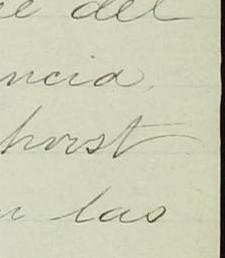 del
ncia.
horst
las